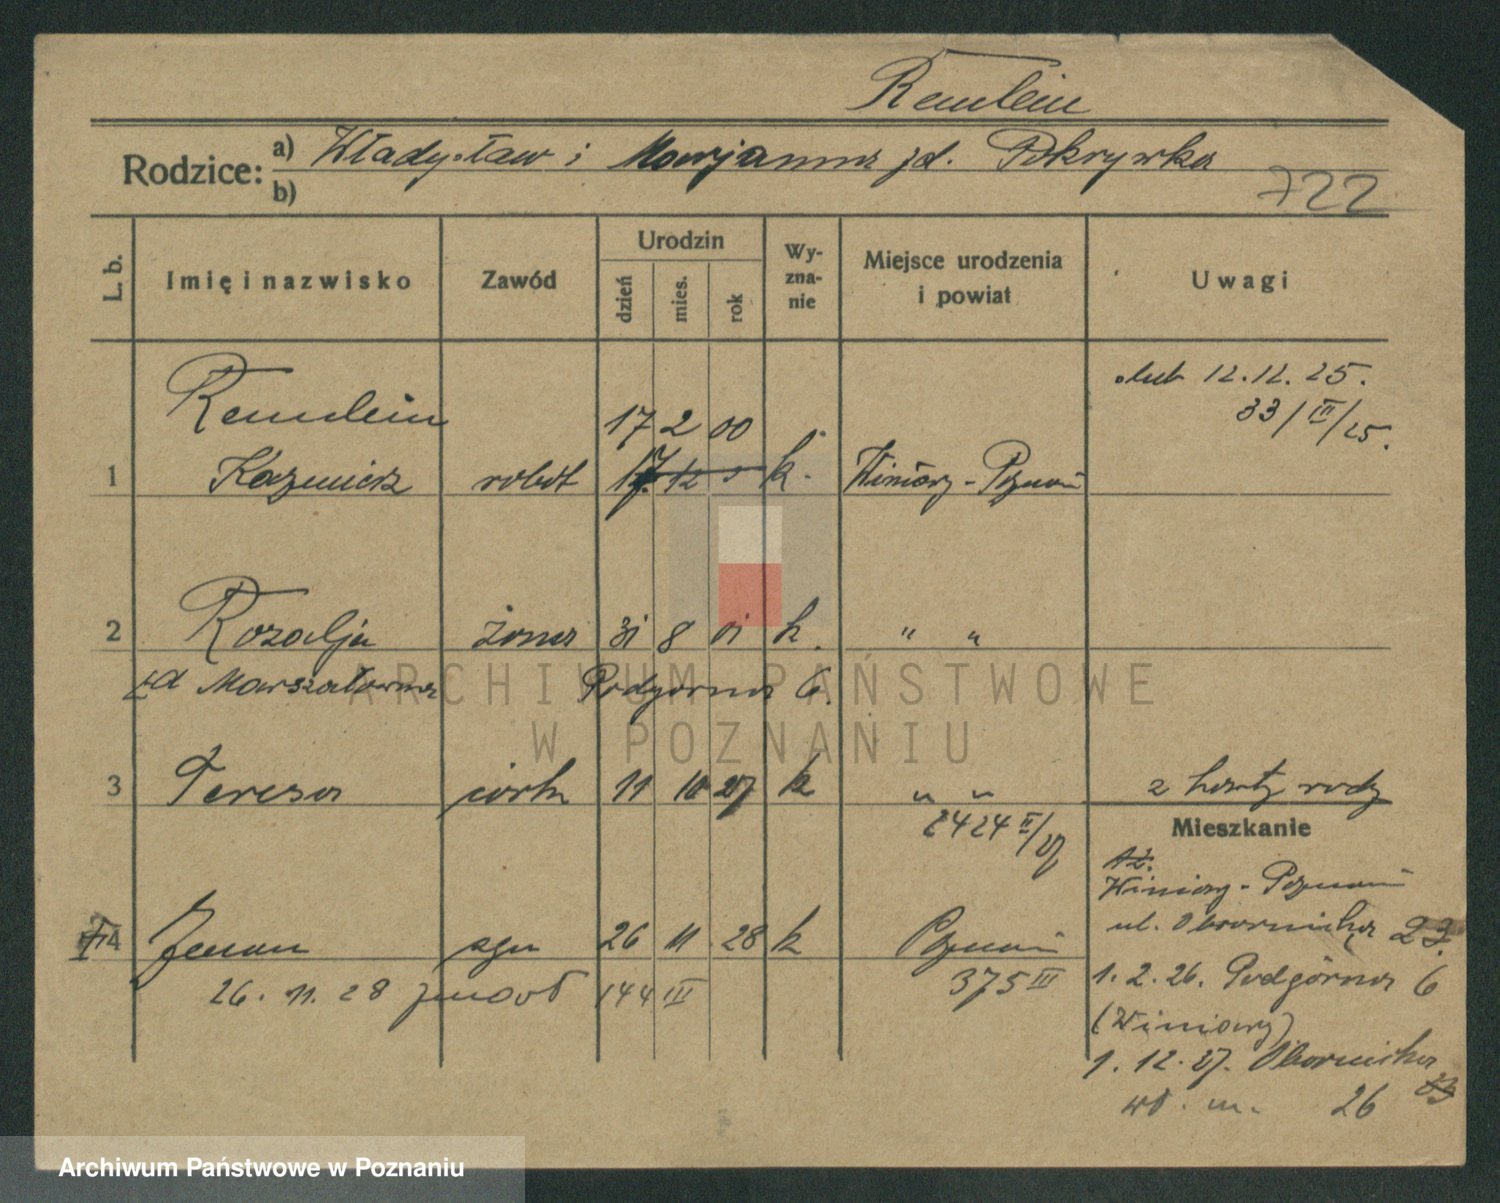 Remlein
Rodzice: a) Władysław i Marjanna zd. Pokrywka
b)
722
L. b. Imię i nazwisko Zawód Urodzin dzień mies. rok Wy-zna-nie Miejsce urodzenia i powiat Uwagi
ślub 12.12.25.
33/III/25.
Remlein 17 2 00
1 Kazimierz robot 17. 12 k. Winiary - Poznań
2 Rozalja żona 31 8 01 k. " "
zd Marszałowna Podgórna 6.
3 Teresa córk 11 10 27 k " " z karty rodz
2424 II/27
Mieszkanie
Winiary - Poznań
ul. Obornicka 23.
4 Zenon syn 26 11 28 k Poznań
375 III
26. 11. 28 zmarł 144 III
1. 2. 26. Podgórna 6
(Winiary)
1. 12. 27. Obornicka 23
wł. m. 26
ARCHIWUM PAŃSTWOWE
W POZNANIU
Archiwum Państwowe w Poznaniu